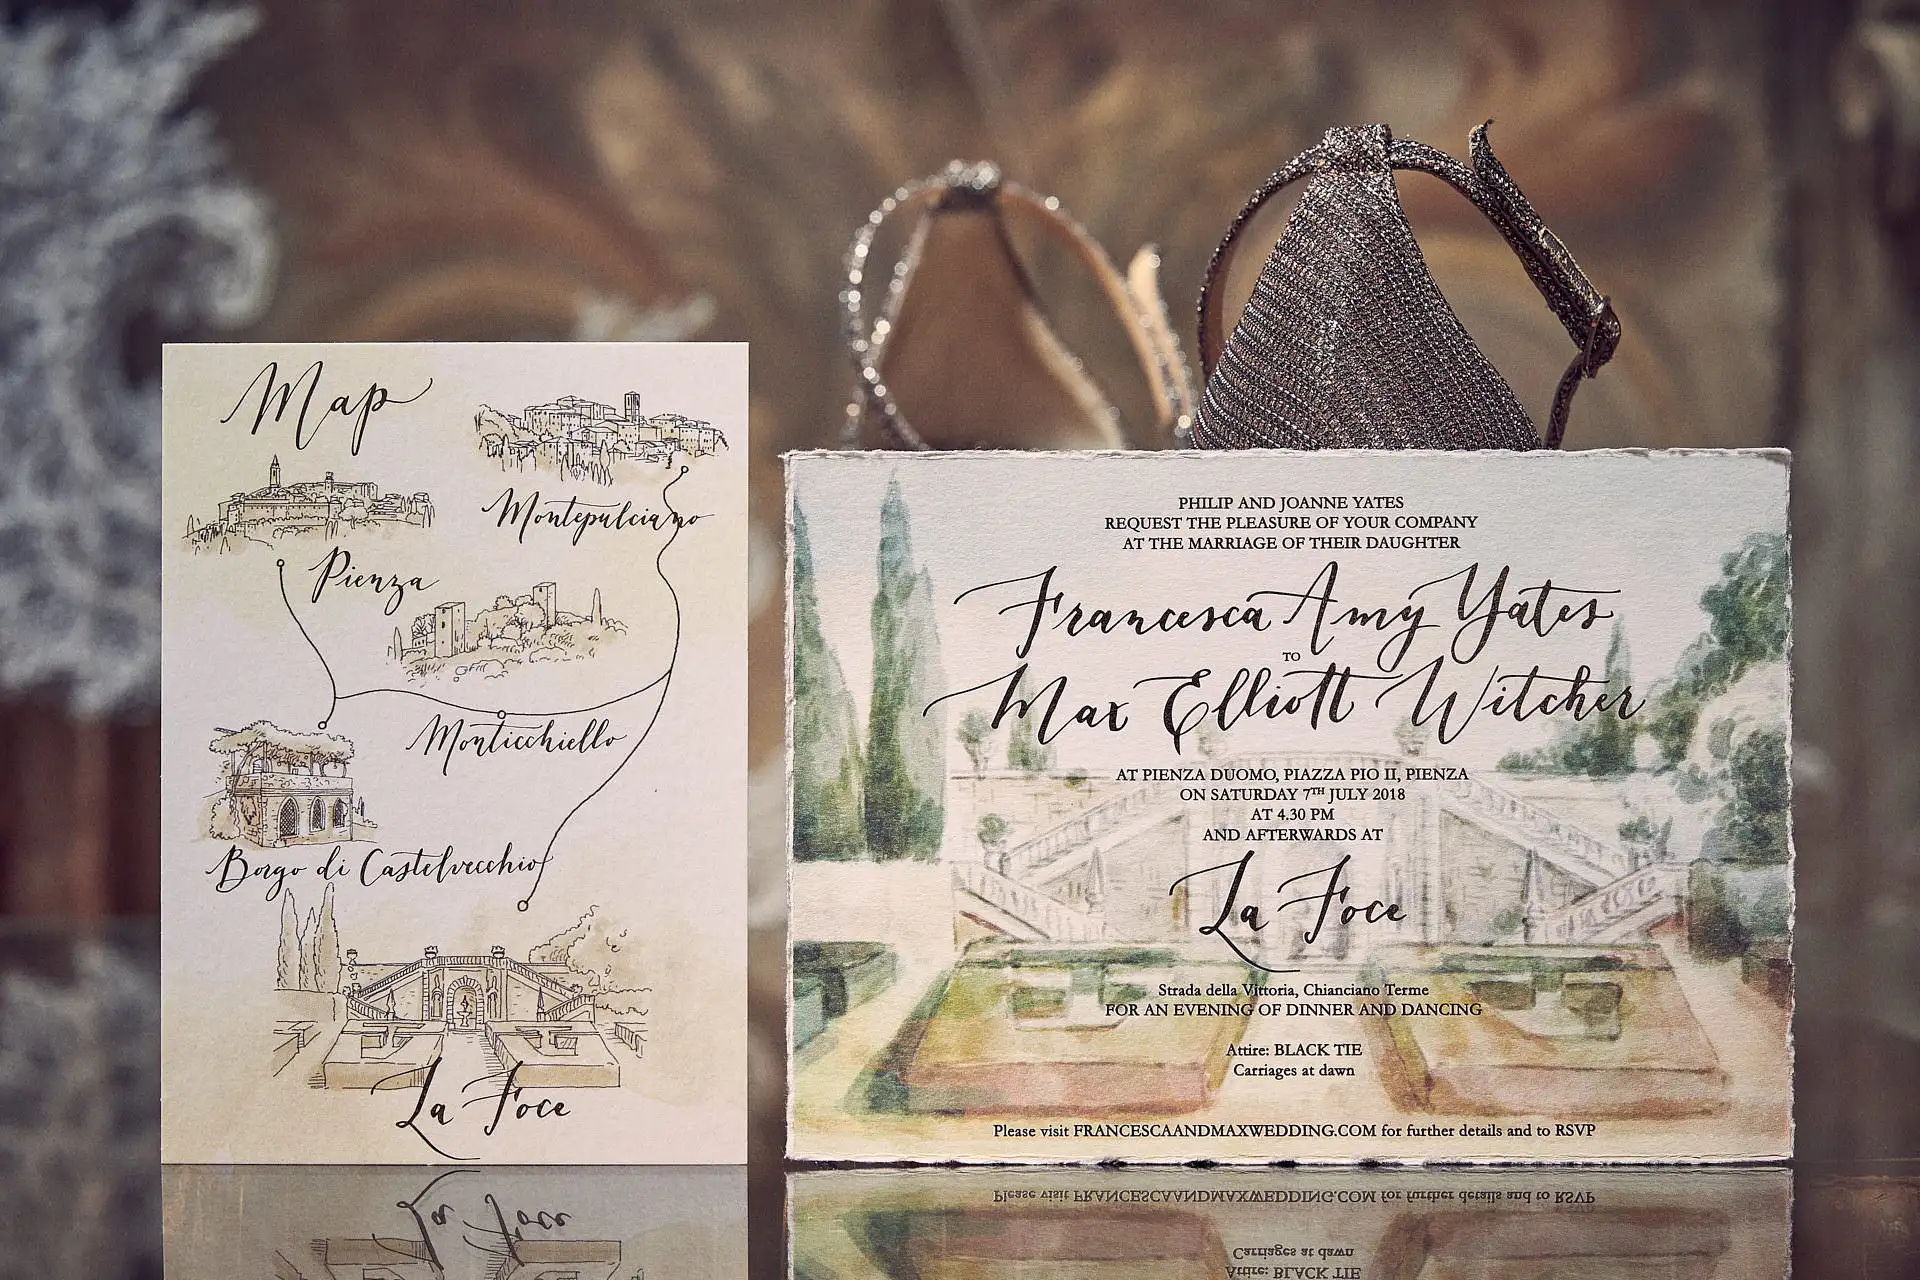 Map
Montepulciano
Pienza
Monticchiello
Borgo di Castelvecchio
La Foce
PHILIP AND JOANNE YATES
REQUEST THE PLEASURE OF YOUR COMPANY
AT THE MARRIAGE OF THEIR DAUGHTER
Francesca Amy Yates
TO
Max Elliott Witcher
AT PIENZA DUOMO, PIAZZA PIO II, PIENZA
ON SATURDAY 7TH JULY 2018
AT 4.30 PM
AND AFTERWARDS AT
La Foce
Strada della Vittoria, Chianciano Terme
FOR AN EVENING OF DINNER AND DANCING
Attire: BLACK TIE
Carriages at dawn
Please visit FRANCESCAANDMAXWEDDING.COM for further details and to RSVP